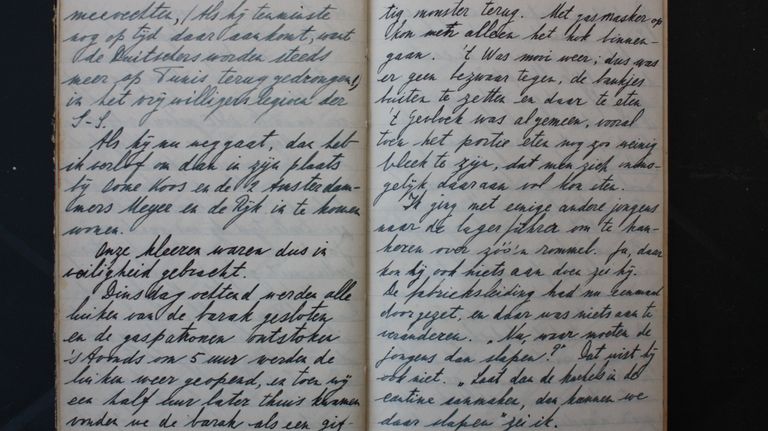 meevechten, (Als hij tenminste
nog op tijd daar aankomt, want
de Duitschers worden steeds
meer op Tunis teruggedrongen!)
in het vrijwilligerslegioen der
S-S.
Als hij nu weggaat, dan heb
ik verlof om dan in zijn plaats
bij Koos en de 2 Amsterdam-
mers Meyer en de Rijk in te komen
wonen.
Onze kleeren waren dus in
veiligheid gebracht.
Dinsdagochtend werden alle
luiken van de barak gesloten
en de gaspatronen ontstoken
's Avonds om 5 uur werden de
luiken weer geopend, en toen wij
een half uur later thuis kwamen
vonden we de barak als een gif-
tig monster terug. Met gasmasker op
kon men alleen het hok binnen-
gaan. 't Was mooi weer; dus was
er geen bezwaar tegen, de bankjes
buiten te zetten en daar te eten
't Gevloek was algemeen, vooral
toen het portie eten nog zoo weinig
bleek te zijn, dat men zich onmo-
gelijk daaraan vol kon eten.
Ik ging met eenige andere jongens
naar de lagerführer om te kan-
keren over zóó'n rommel. Ja, daar
kon hij ook niets aan doen zei hij.
De fabrieksleiding had nu eenmaal
doorgezet, en daar was niets aan te
veranderen. „Nu, waar moeten de
jongens dan slapen?" Dat wist hij
ook niet. „Laat dan de kachels in de
cantine aanmaken, dan kunnen we
daar slapen" zei ik.